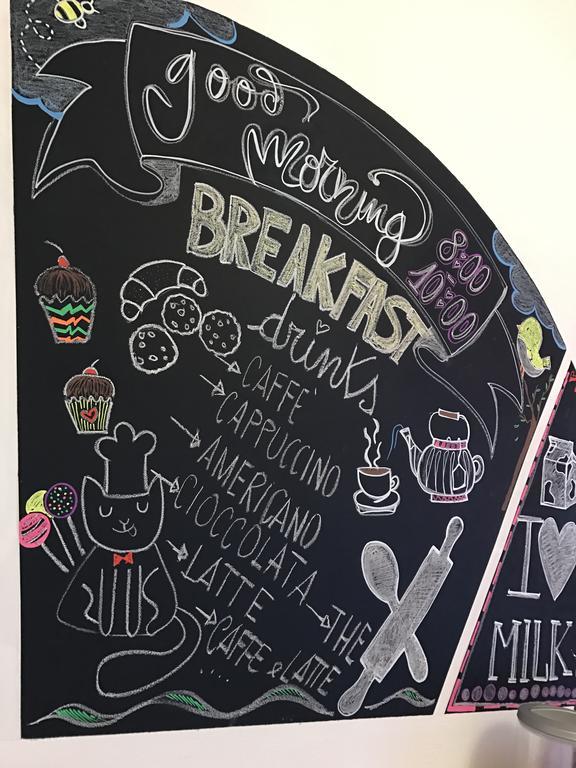 good
morning
8:00
10:00
BREAKFAST
drinks
CAFFÈ
CAPPUCCINO
AMERICANO
CIOCCOLATA
LATTE
THE
CAFFE e LATTE
....
I
MILK